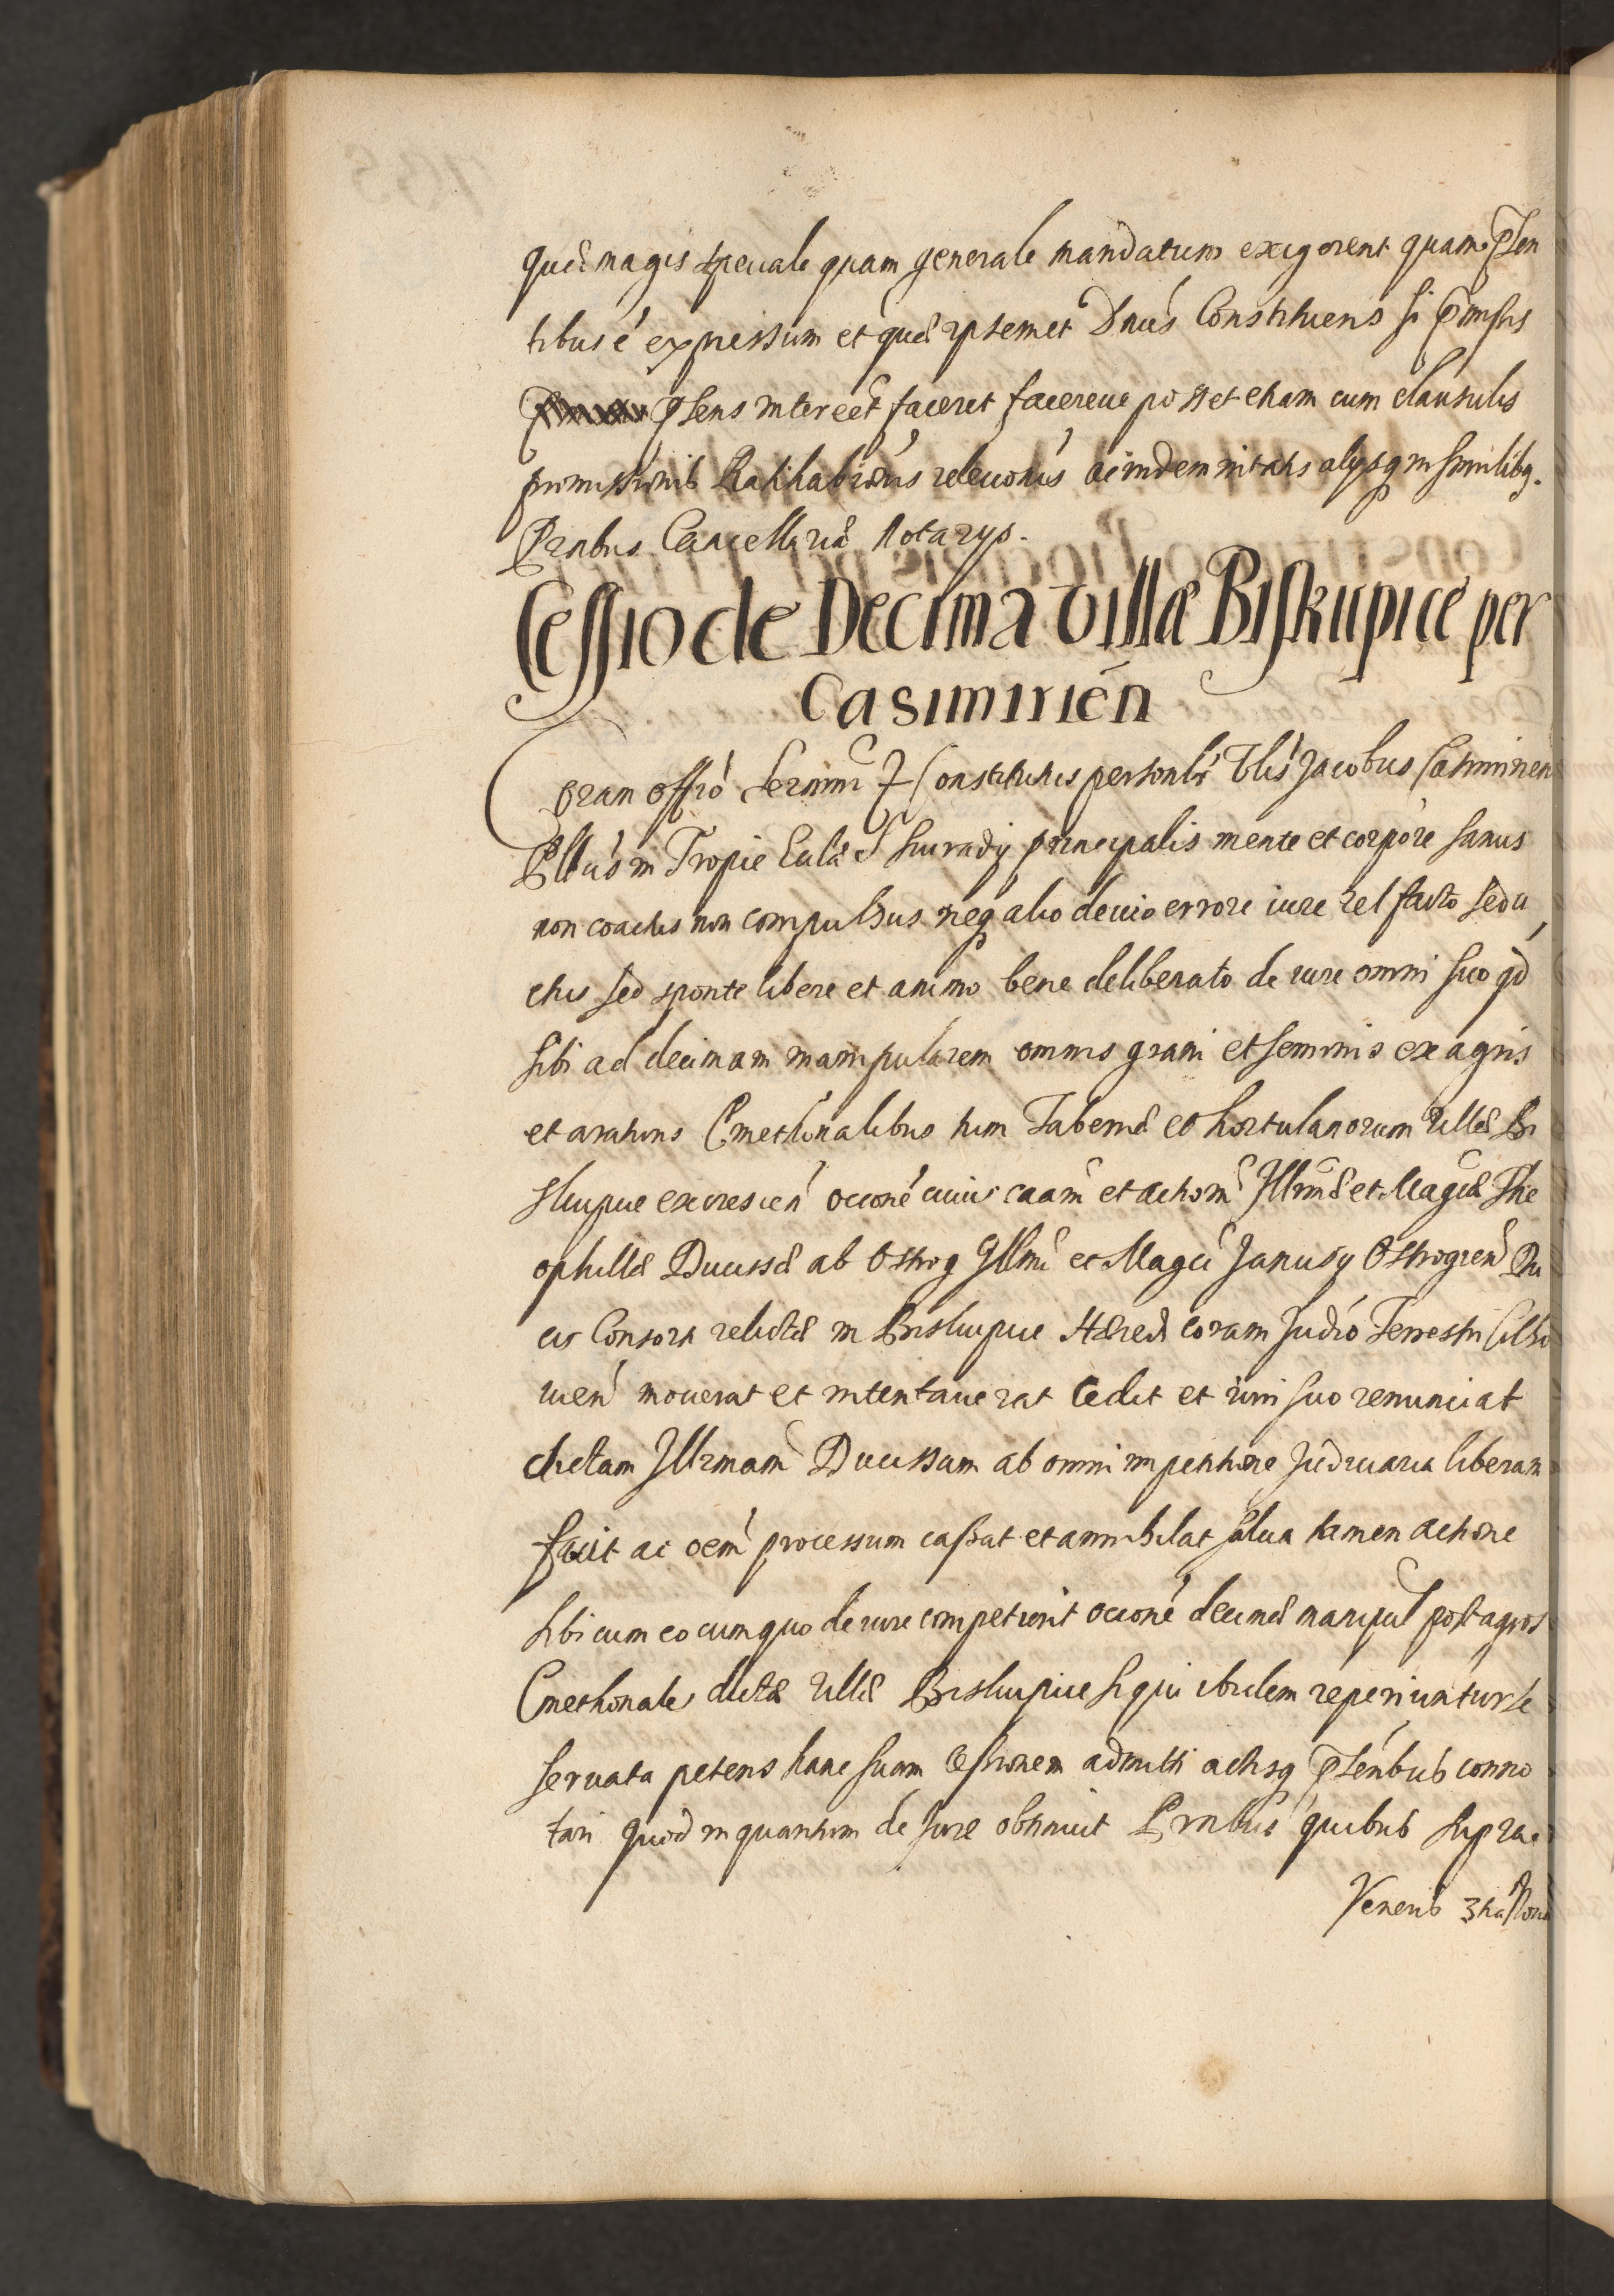 quae magis speciale quam generale mandatum exigerent quam pñsen
tibus é expressum et quae ipsemet Dnús Constituens si pmissis
pñsens intereet́ faceret facereue posset etiam cum clausulis
promissionis Ratihabiōnis releuōnis ac indemnitatis alysq̨ insimilibq.
Pntbus Cancellariae Notarys.
Cessio de Decima villae Biskupice per
Casimirień
Coram offió Serñmi Constitutus personlr̃ Vlis Jacobus Casimirien
Pllbús in Tropie Eclae S Suirady principalis mente et corpore sanus
non coactus non compulsus neq̨ alio deuio errore iure vel facto sedu,
ctus sed sponte libere et animo bene deliberato de iure omni suo qd̃
sibi ad decimam manipularem omnis grani et seminis ex agris
et aratúris Cmethonalibus tum Tabernae et hortulanorum Villae Bi
skupice excrescen̄ occōne cuius caam̃ et actiom̃ Jllrm̃ae et Magcae The
ophillae Ducissae ab Ostrog Jllmĩ et Magci Janusy Ostrogień Du
cis Consors relictae in Biskupice Haered coram Judió Terrestri Cilho
uień mouerat et intentauerat Cedit et iuri suo renunciat
dictam Jllrmam̃ Ducissam ab omni impetitione Judiciaria liberam
facit ac oem̃ processum cassat et annihilat salua tamen actione
sibi cum eo cum quo de iure competierit occōne decimae manipul̃ post agros
Cmethonales dictae Villae Biskupice siqui ibidem reperiuntur se
seruata petens hanc suam Cessionem admitti actisq̨ pñsentibus conno
tari quod inquantum de Jure obtinuit Pntbus quibus supra.
Veneris 3tia